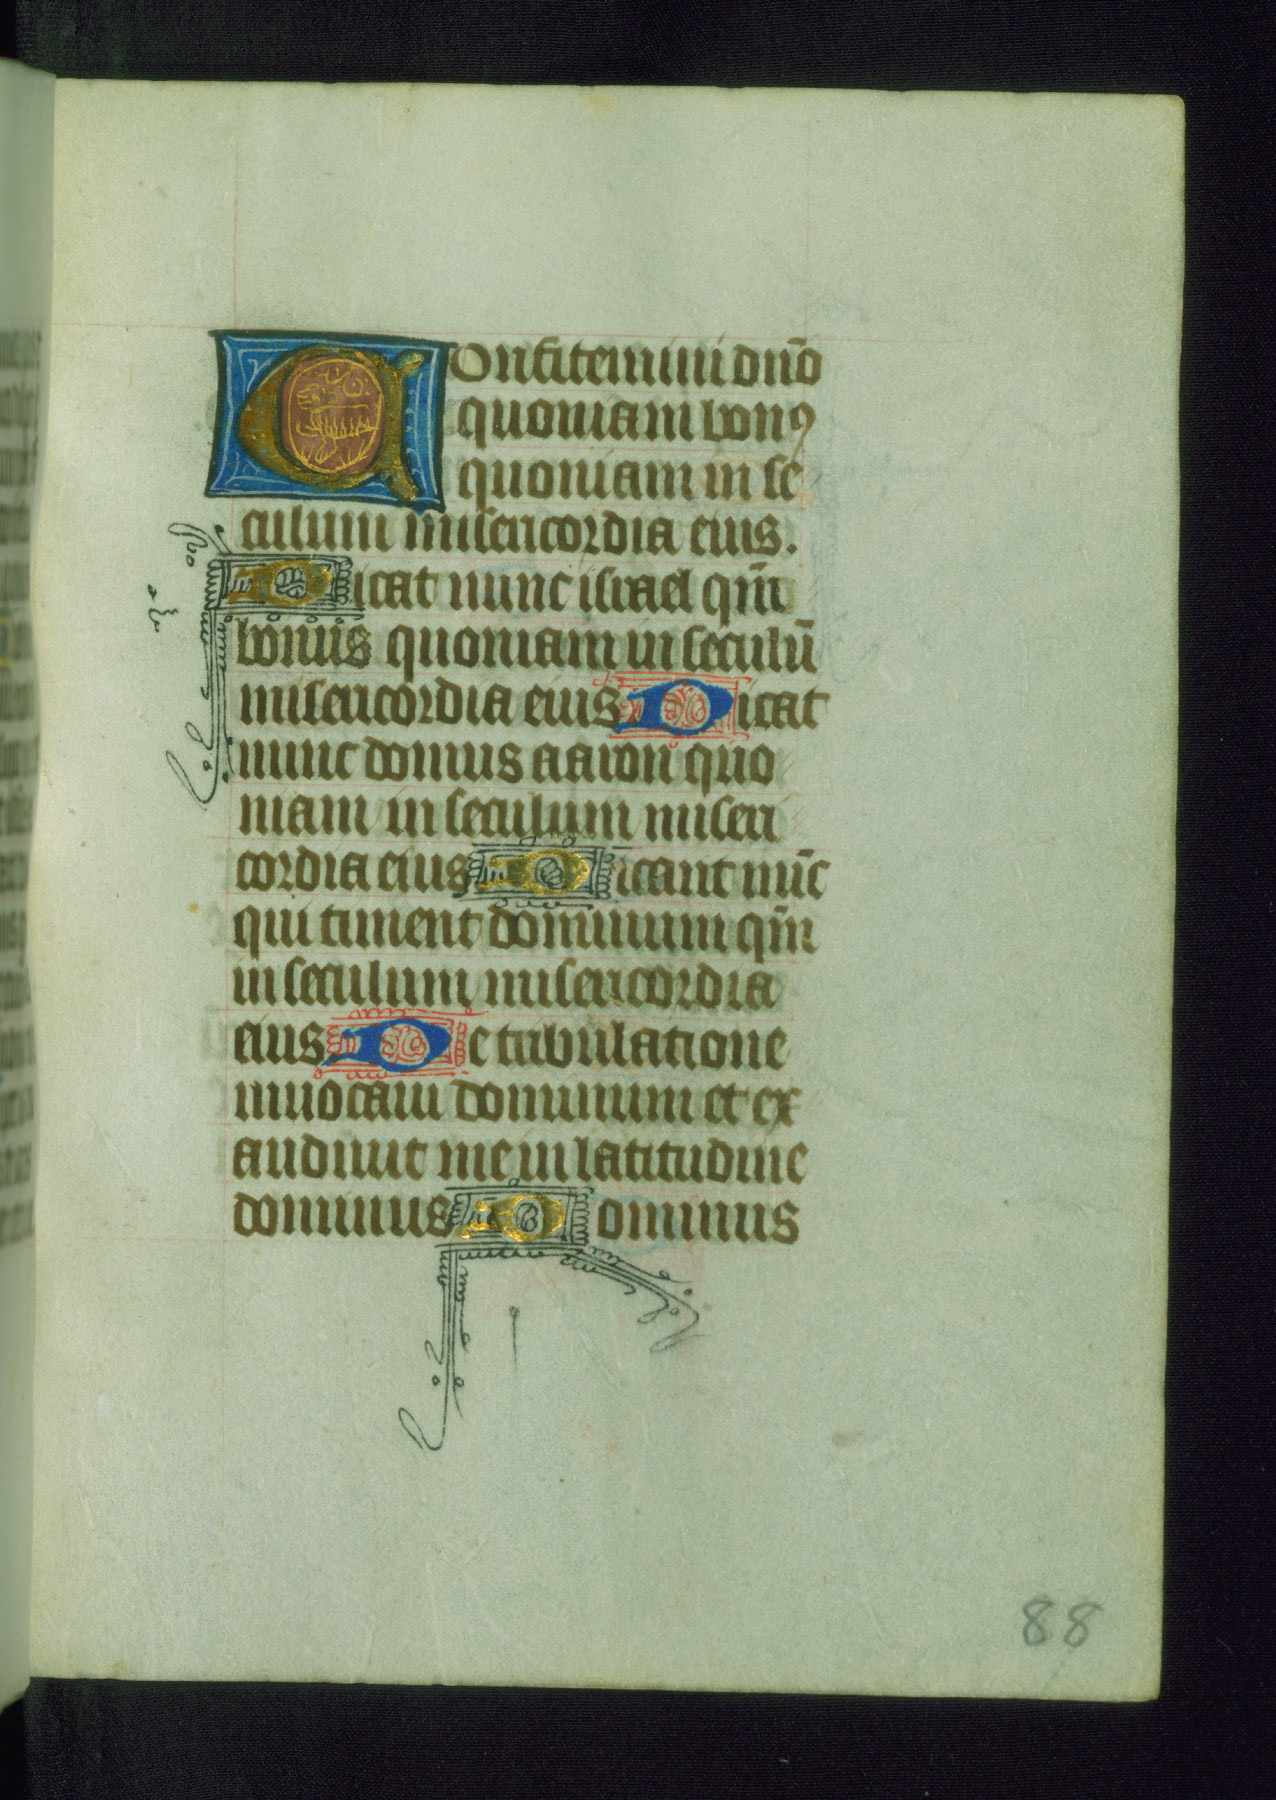 Confitemini dn̄o
quoniam bonꝰ
quoniam in se
culum misericordia eius.
Dicat nunc israel qm̄
bonus quoniam in seculū
misericordia eius Dicat
nunc domus aaron quo
niam in seculum miseri
cordia eius Dicant nūc
qui timent dominum qm̄
in seculum misericordia
eius De tribulatione
inuocaui dominum et ex
audiuit me in latitudine
dominus Dominus
88